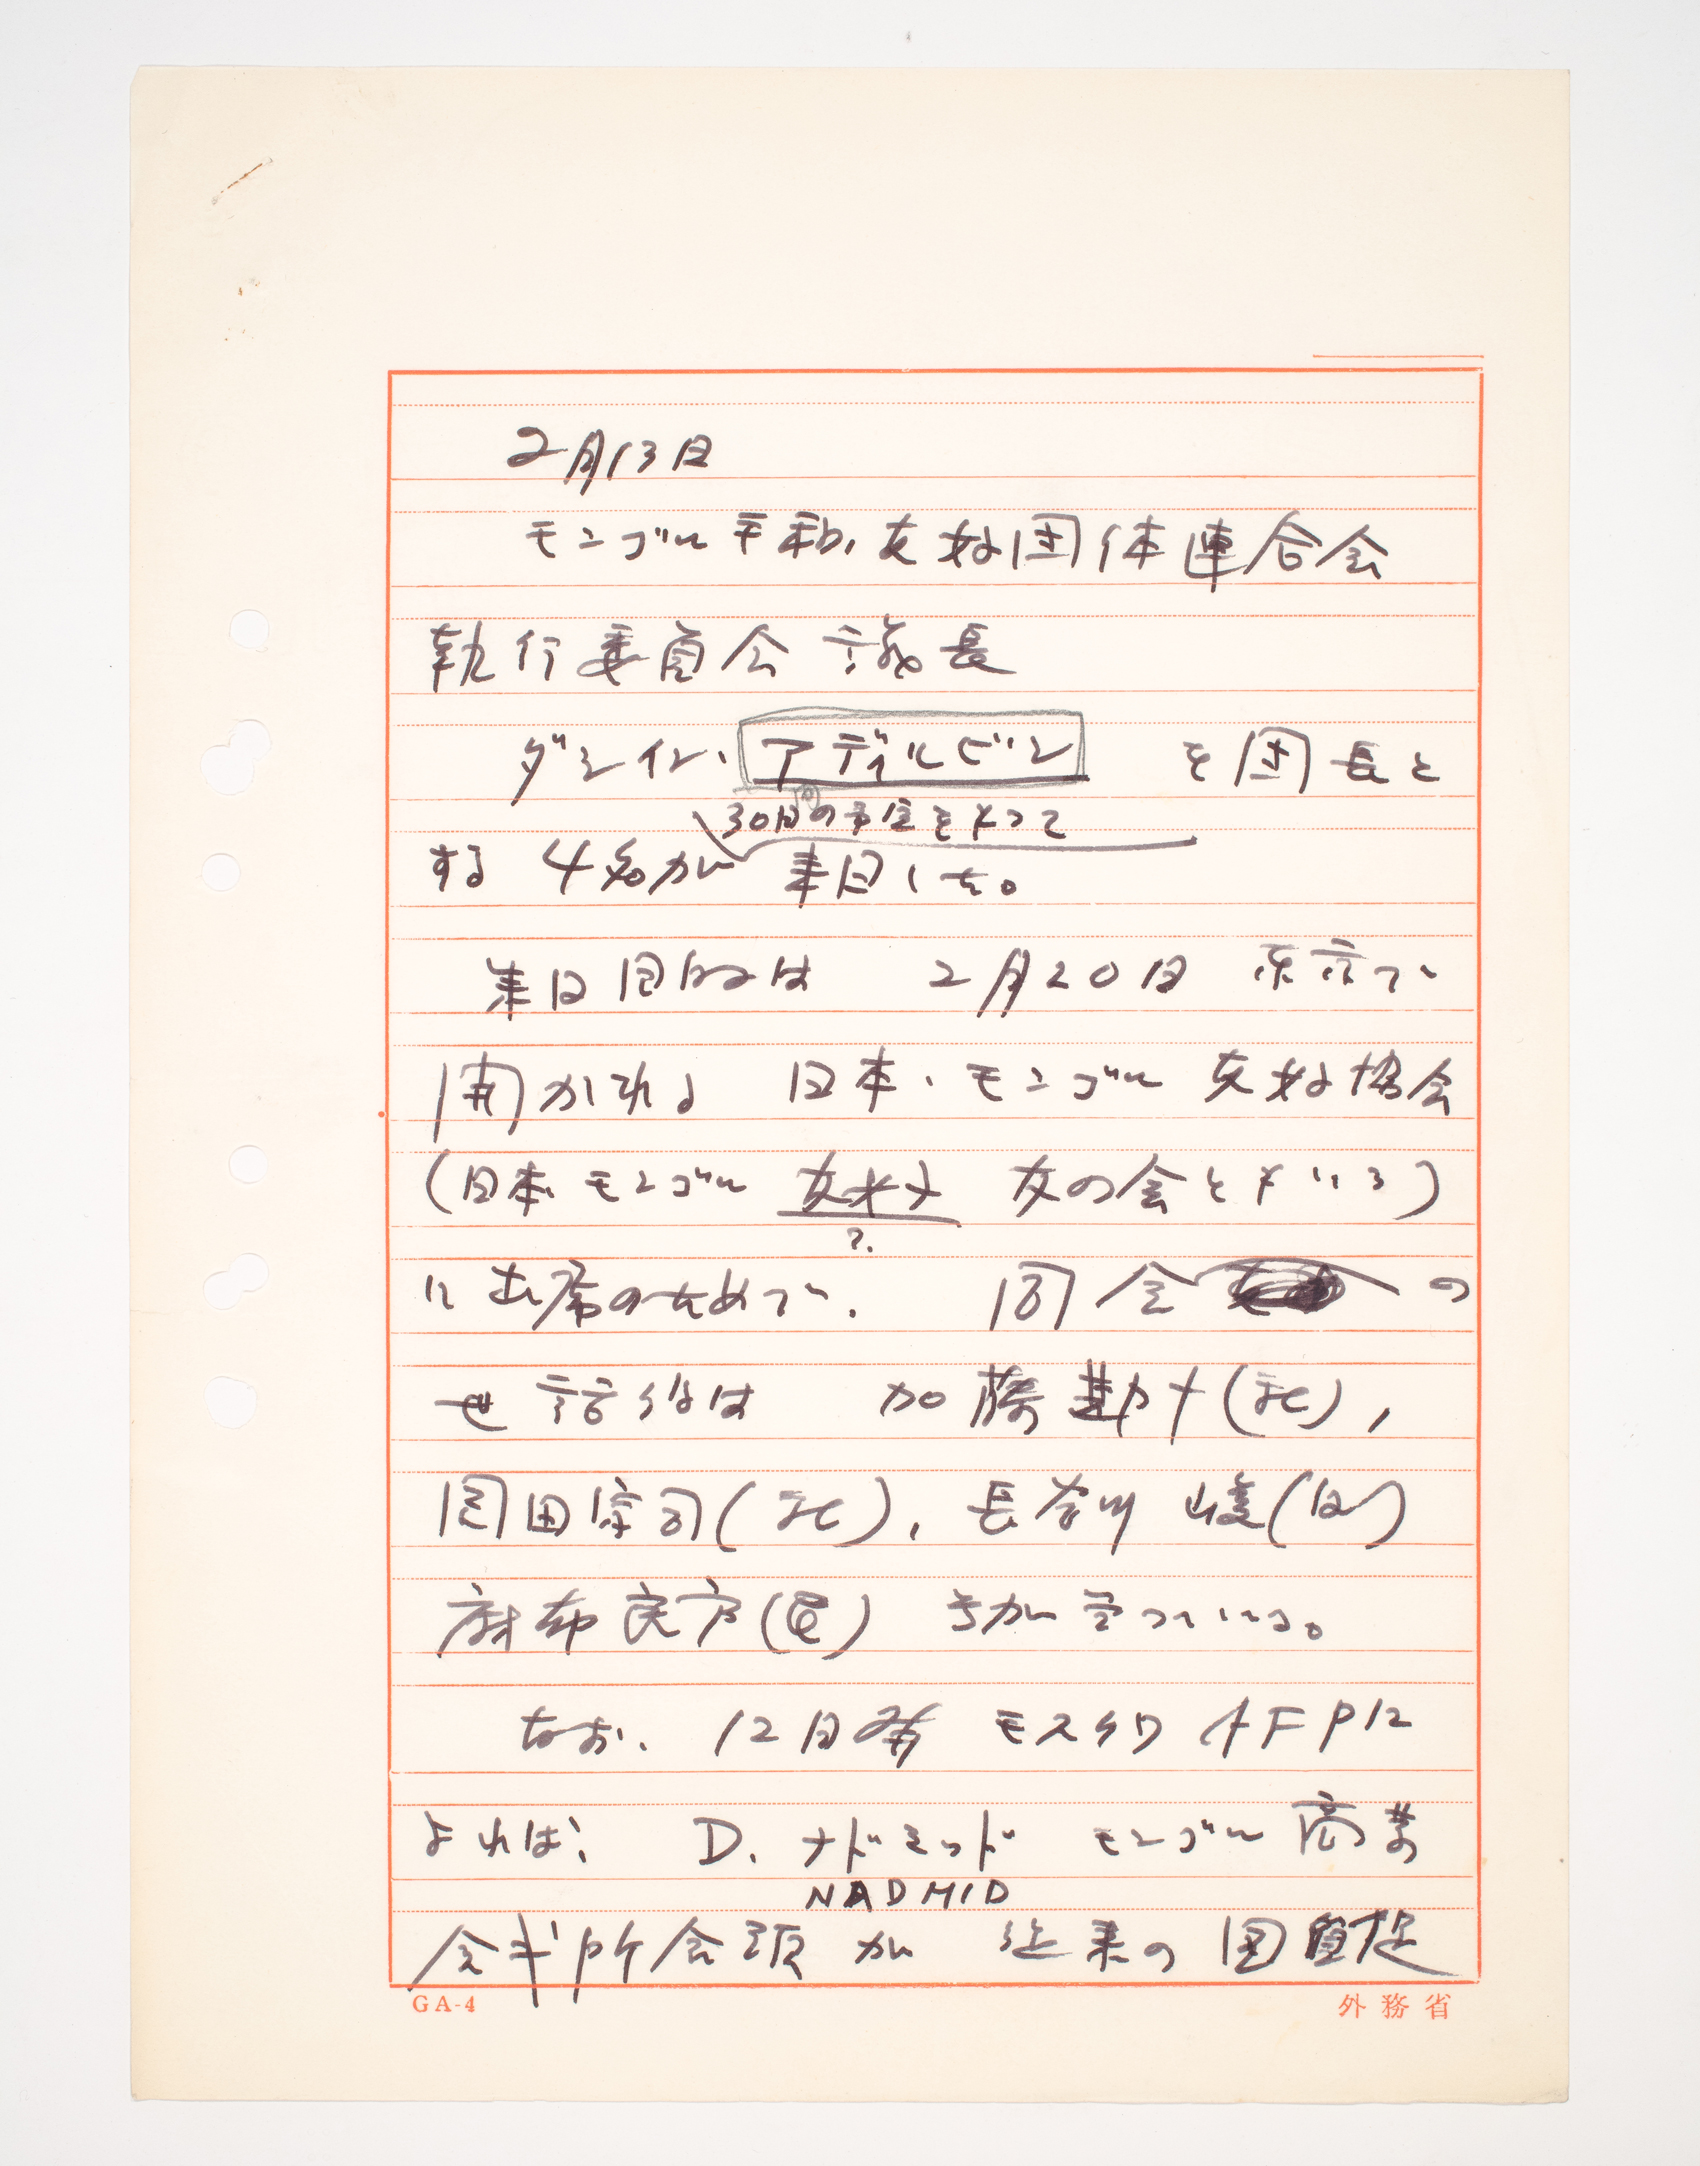 2月13日
モンゴル平和、友好団体連合会
執行委員会議長
ダシイン・アディルビシ を団長と
30日の予定をもつて
する 4名が 来日した。
来日目的は 2月20日 東京で
開かれる 日本・モンゴル 友好協会
(日本・モンゴル 友好 友の会ともいう)
?
に出席のためで、 同会 の
世話役は 加藤勘十(社),
岡田宗司(社), 長谷川 峻(自)
麻布良方(民) 等が 言つている。
なお、 12日発 モスクワ AFPに
よれば、 D. ナドミッド モンゴル 商業
NADMID
会ギ所会頭 が 従来の 団員
GA-4
外務省